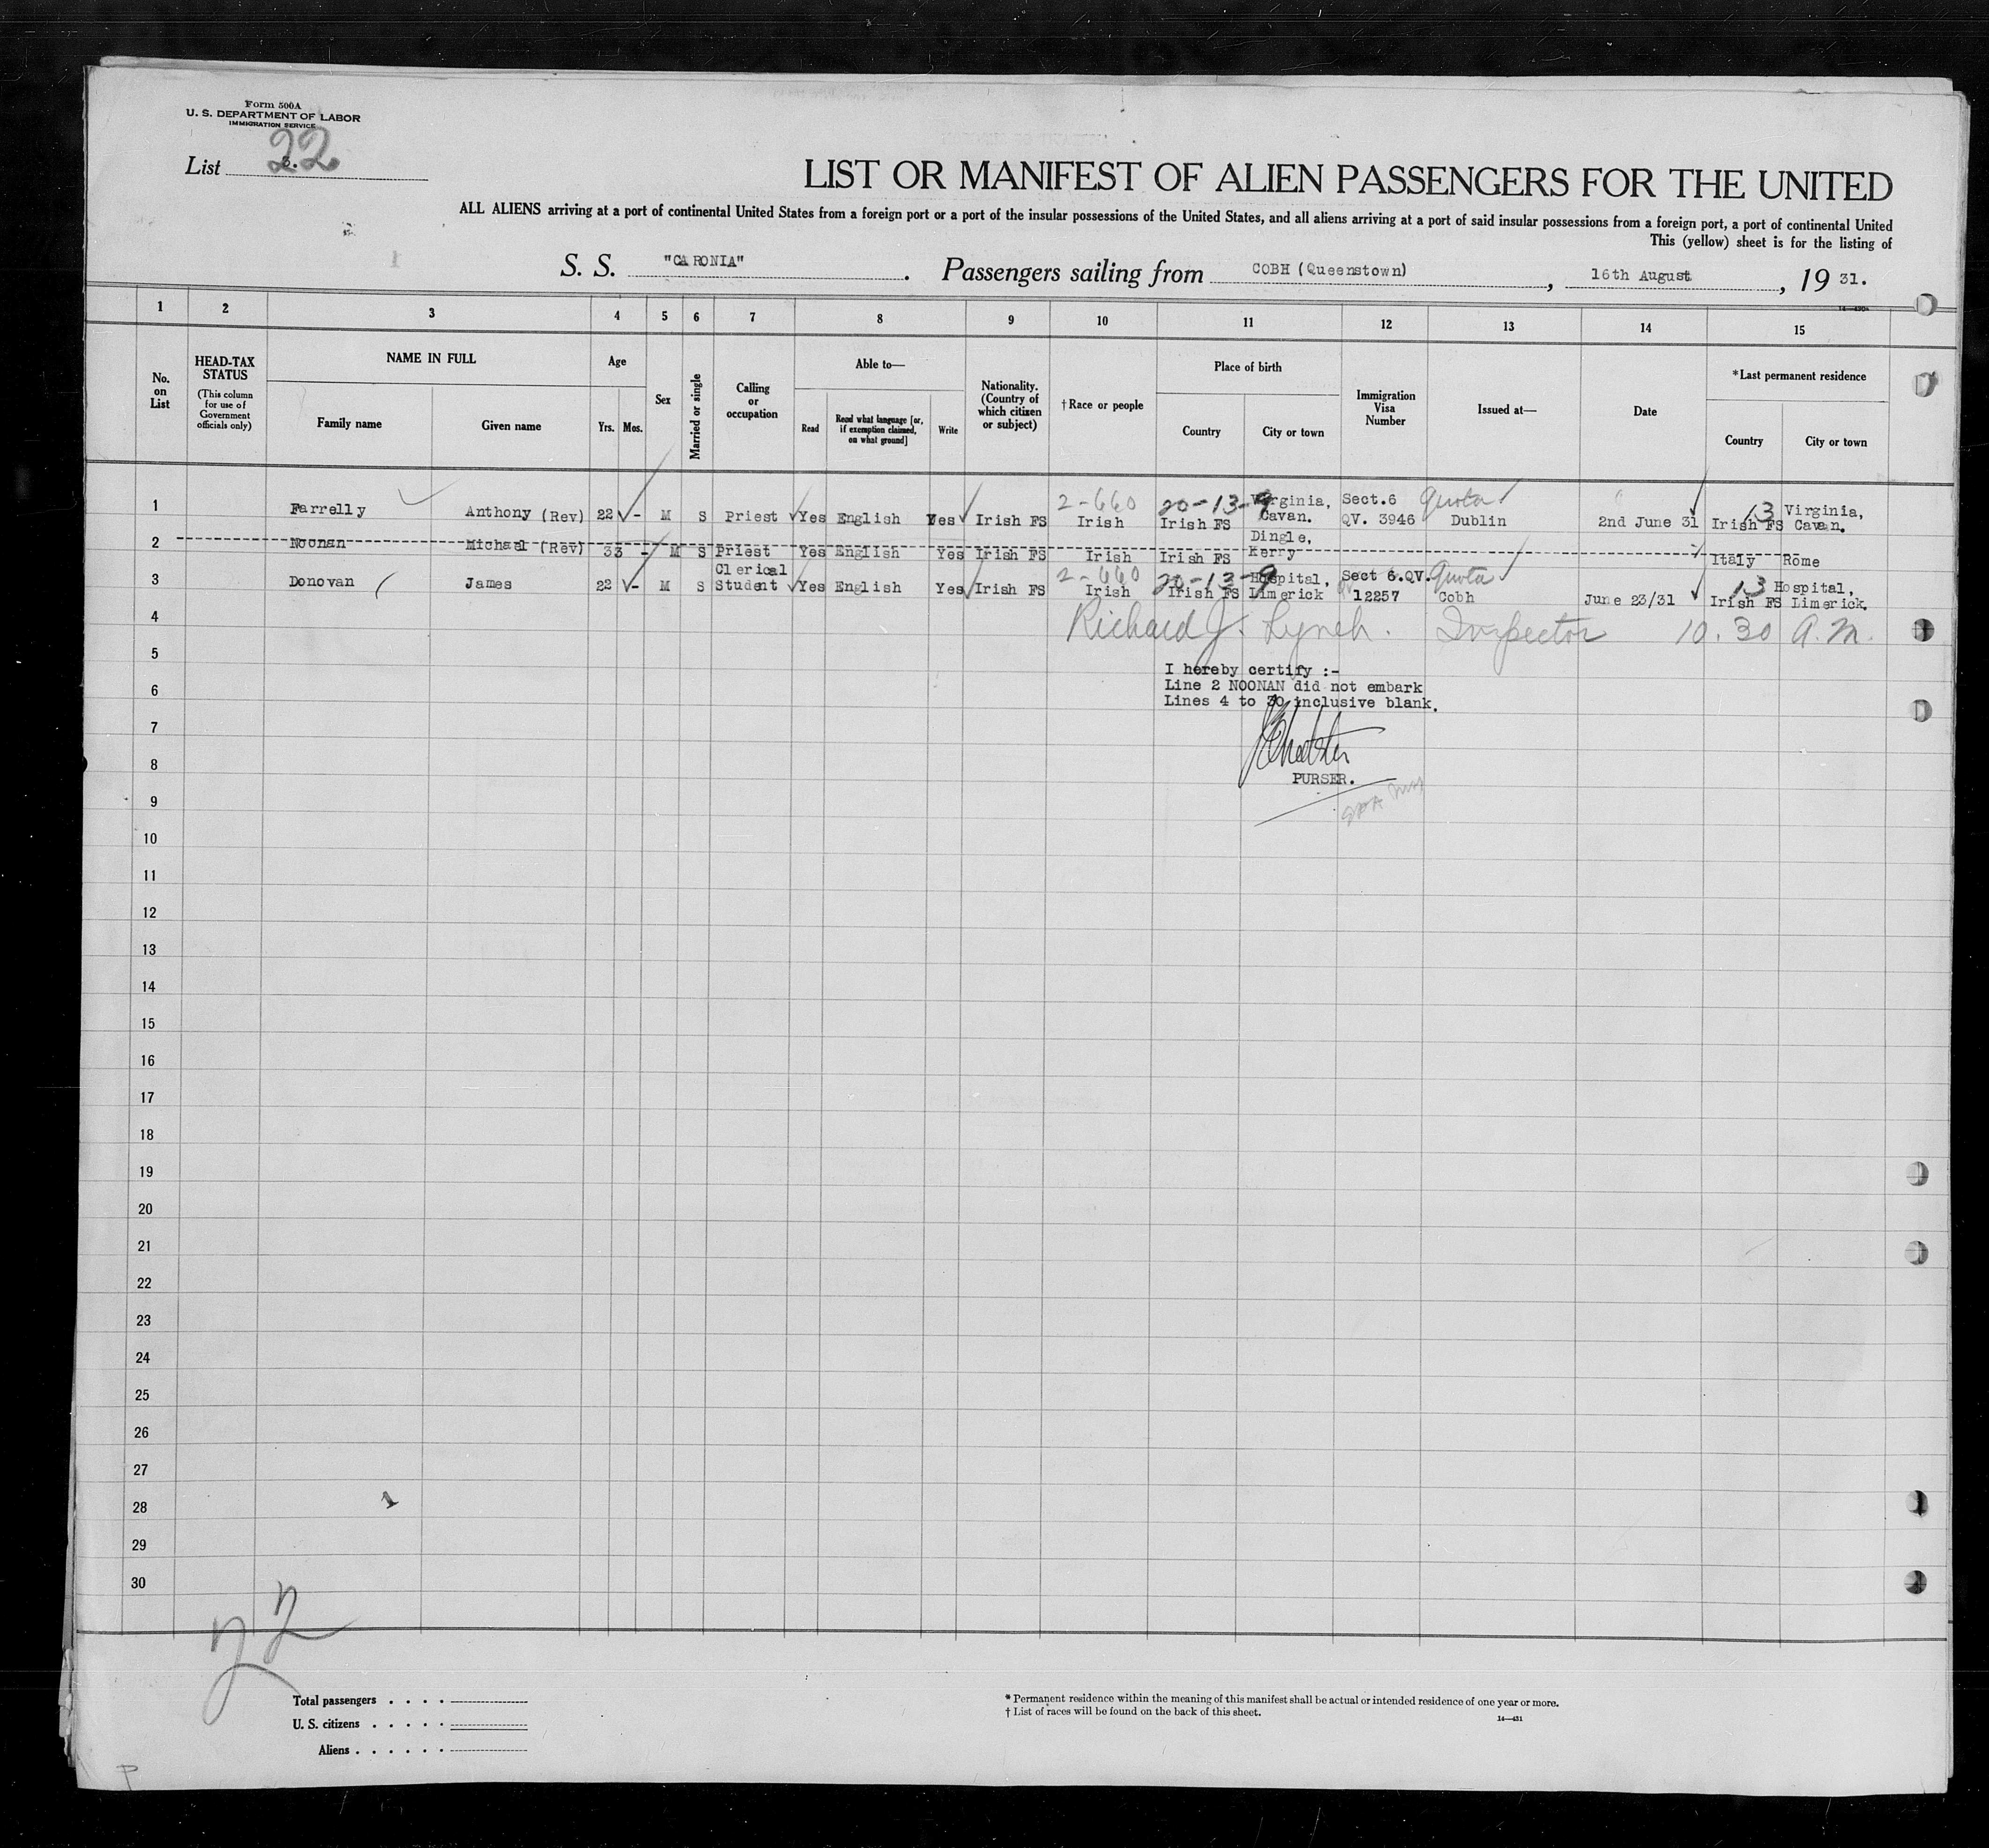 Form 500A
U. S. DEPARTMENT OF LABOR
IMMIGRATION SERVICE
List 3. 22
LIST OR MANIFEST OF ALIEN PASSENGERS FOR THE UNITED
ALL ALIENS arriving at a port of continental United States from a foreign port or a port of the insular possessions of the United States, and all aliens arriving at a port of said insular possessions from a foreign port, a port of continental United
This (yellow) sheet is for the listing of
S. S. "CARONIA" . Passengers sailing from COBH (Queenstown) , 16th August , 19 31.
1 2 3 4 5 6 7 8 9 10 11 12 13 14 15
No. on List
HEAD-TAX STATUS
(This column for use of Government officials only)
NAME IN FULL
Family name Given name
Age
Yrs. Mos.
Sex
Married or single
Calling or occupation
Able to—
Read
Read what language [or, if exemption claimed, on what ground]
Write
Nationality. (Country of which citizen or subject)
†Race or people
Place of birth
Country City or town
Immigration Visa Number
Issued at—
Date
*Last permanent residence
Country City or town
1 Farrelly Anthony (Rev) 22 - M S Priest Yes English Yes Irish FS 2-660 Irish 20-13-9 Irish FS Virginia, Cavan. Sect.6 QV. 3946 Quota Dublin 2nd June 31 13 Irish FS Virginia, Cavan.
2 Noonan Michael (Rev) 33 - M S Priest Yes English Yes Irish FS Irish Irish FS Dingle, Kerry Italy Rome
3 Donovan James 22 - M S Clerical Student Yes English Yes Irish FS 2-660 Irish 20-13-9 Irish FS Hospital, Limerick Sect 6.QV. 12257 Quota Cobh June 23/31 13 Irish FS Hospital, Limerick.
4 Richard J. Lynch. Inspector 10.30 A.M.
5
I hereby certify :-
6
Line 2 NOONAN did not embark
Lines 4 to 30 inclusive blank.
7
8
PURSER.
9
10
11
12
13
14
15
16
17
18
19
20
21
22
23
24
25
26
27
28
29
30
22
Total passengers . . . .
U. S. citizens . . . . .
Aliens . . . . . .
* Permanent residence within the meaning of this manifest shall be actual or intended residence of one year or more.
† List of races will be found on the back of this sheet.
14—431